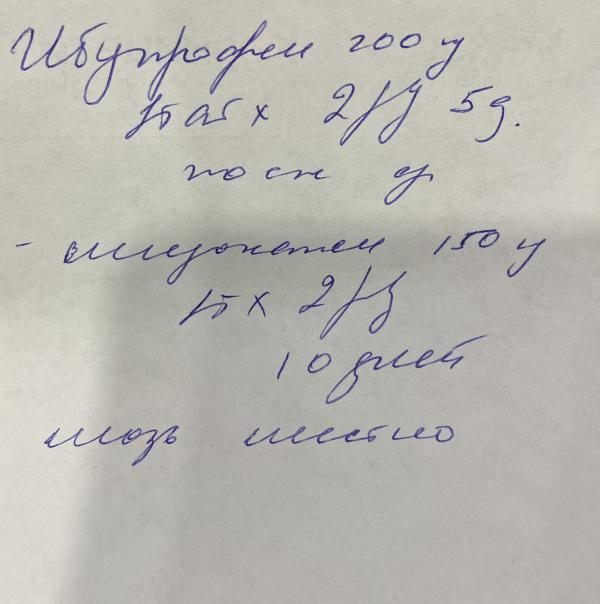 Ибупрофен 200 мг
1 таб х 2 р/д 5 д.
после еды
- мидокалм 150 мг
1 т х 2 р/д
10 дней
мазь местно